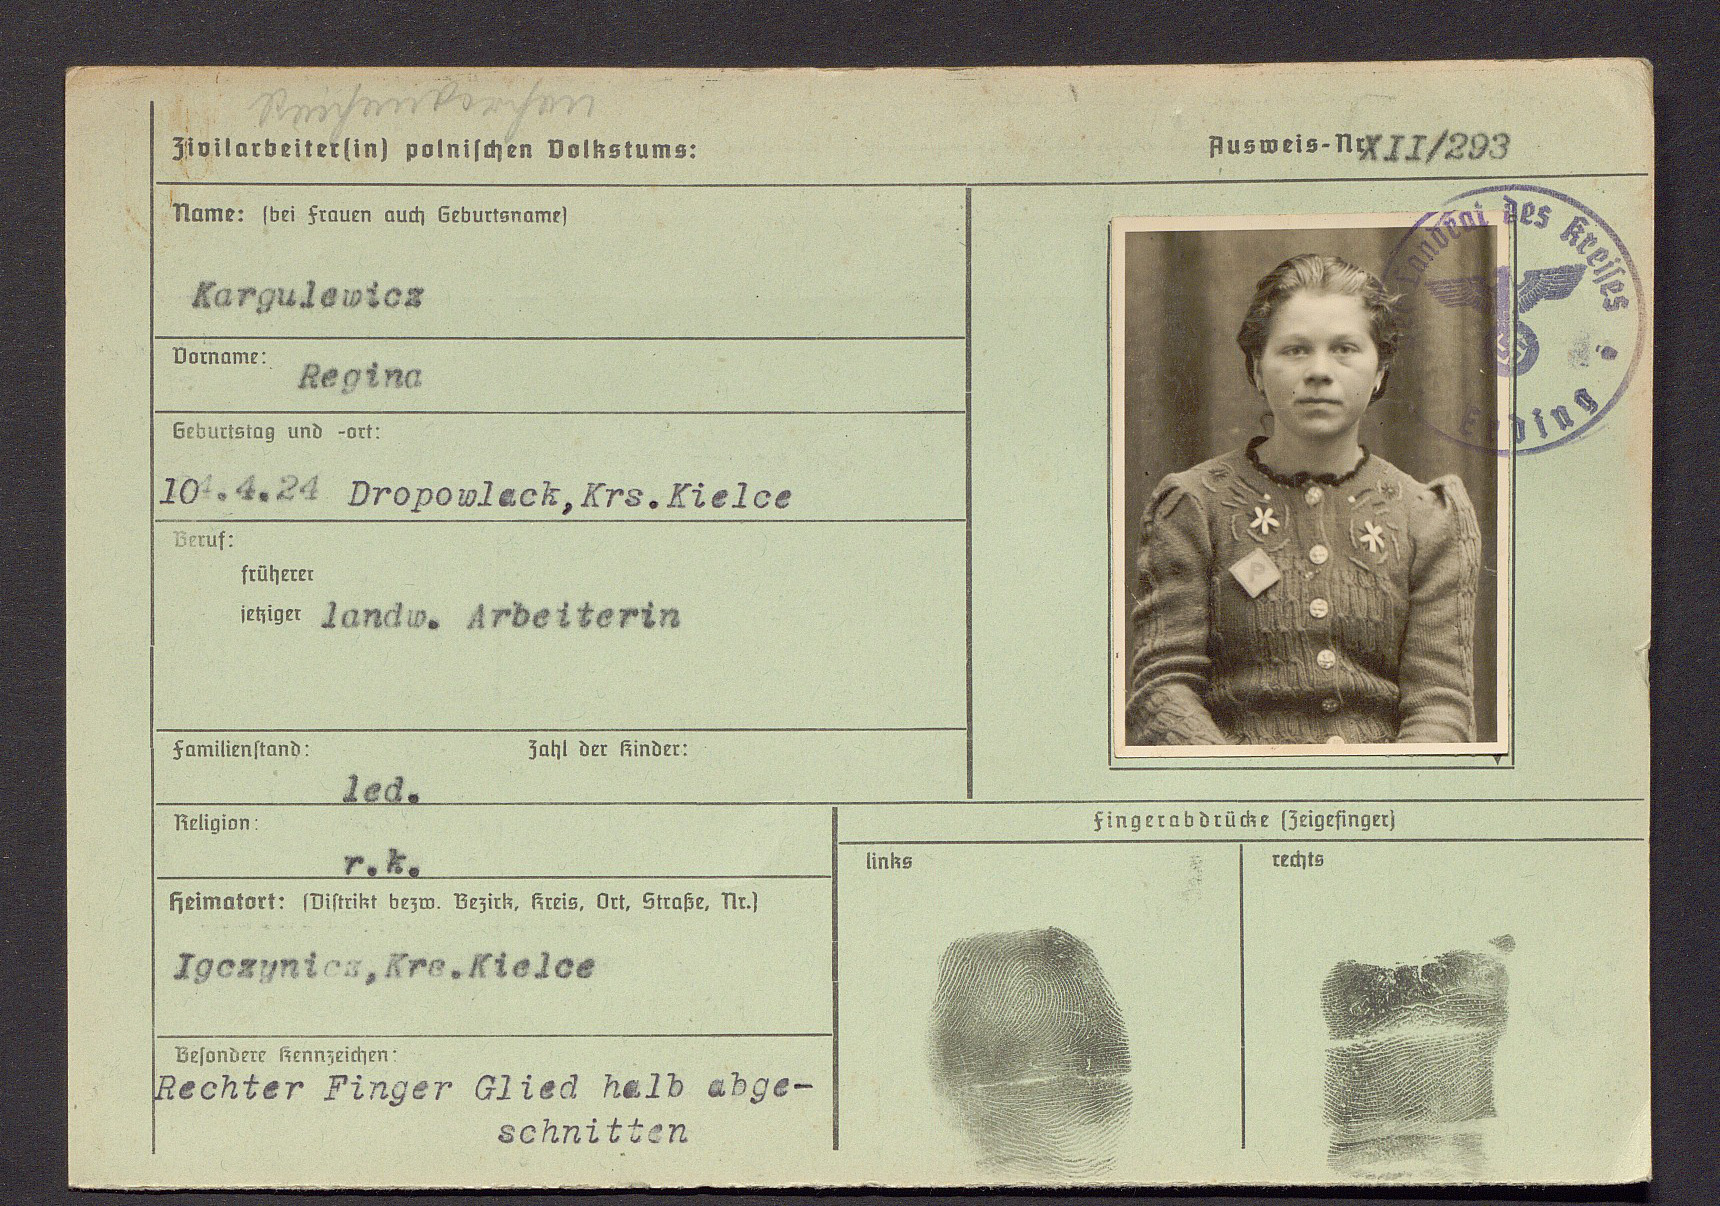 Zivilarbeiter(in) polnischen Volkstums:
Ausweis-Nr. XII/293
Name: (bei Frauen auch Geburtsname)
Kargulewicz
Vorname: Regina
Geburtstag und -ort:
10.4.24 Dropowlack, Krs. Kielce
Beruf:
früherer
jetziger landw. Arbeiterin
Familienstand: Zahl der Kinder:
led.
Religion:
r.k.
Heimatort: (Distrikt bezw. Bezirk, Kreis, Ort, Straße, Nr.)
Igczynicz, Krs. Kielce
Besondere Kennzeichen:
Rechter Finger Glied halb abge-
schnitten
Landrat des Kreises
Erding
P
Fingerabdrücke (Zeigefinger)
links
rechts